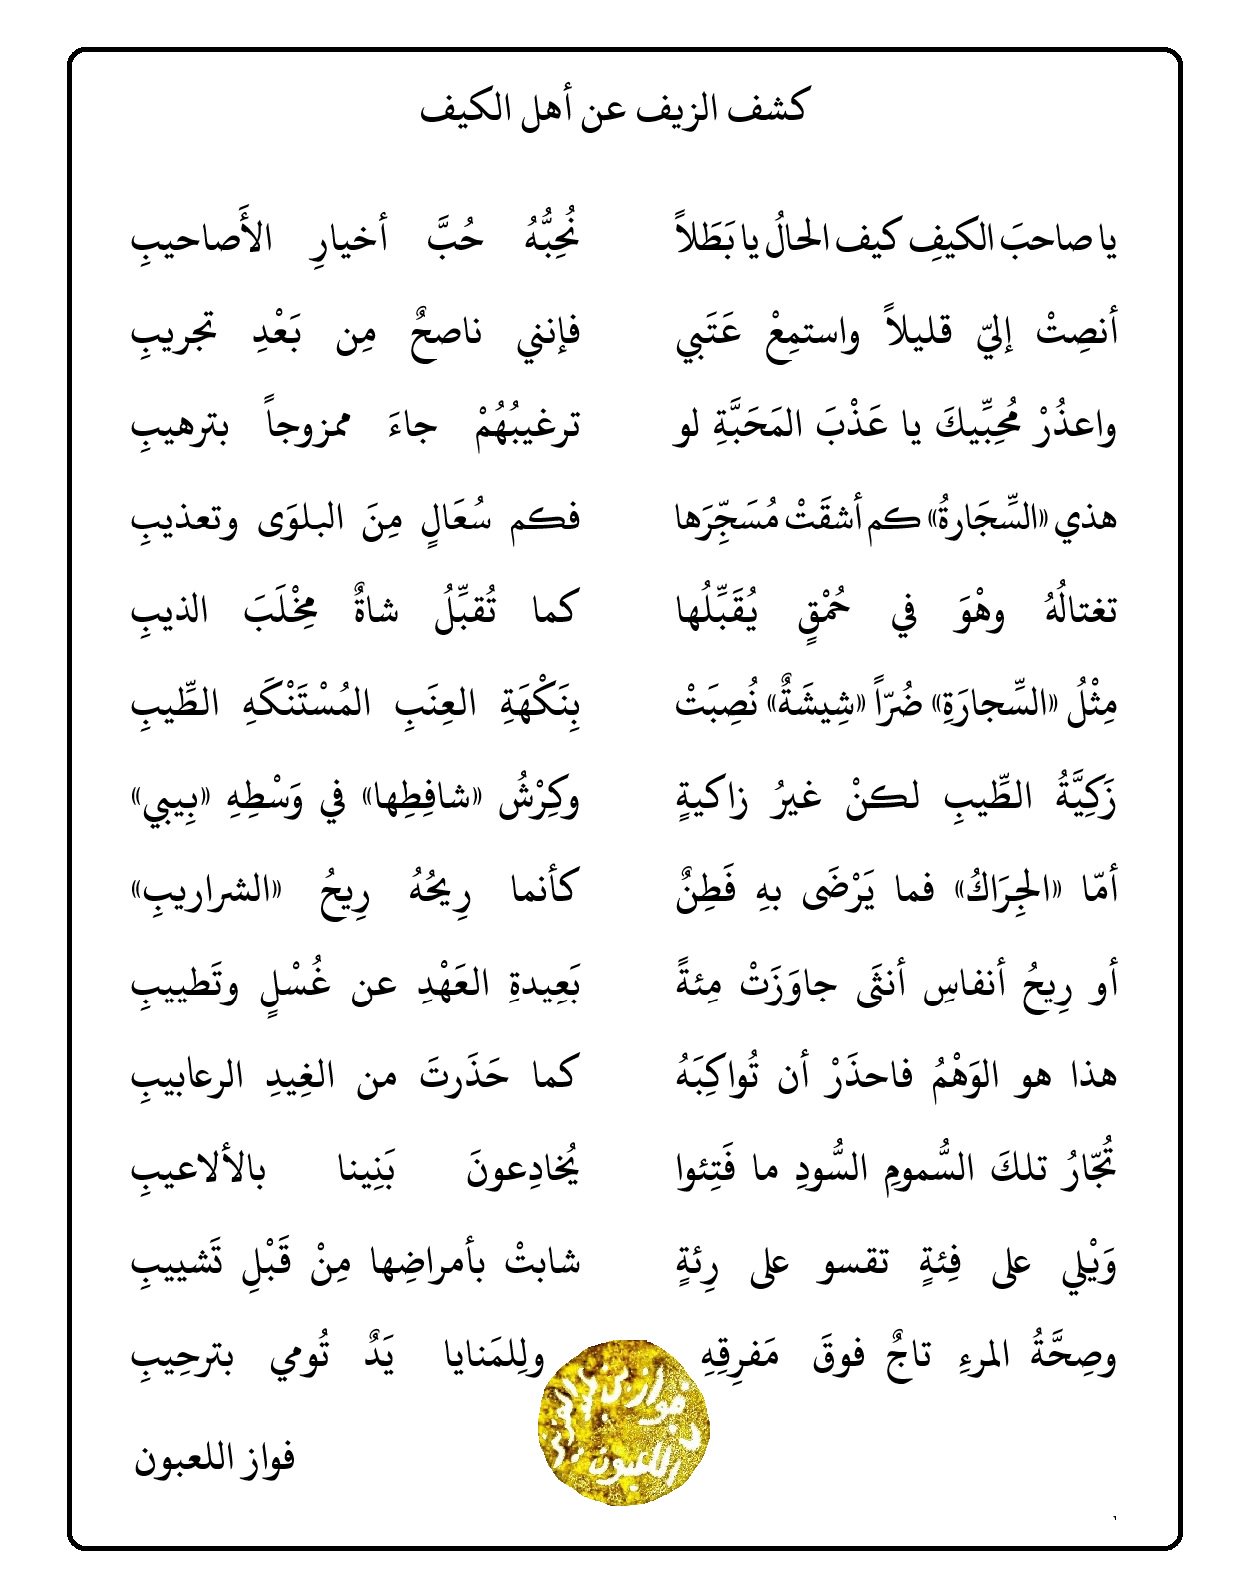 كشف الزيف عن أهل الكيف
يا صاحبَ الكيفِ كيف الحالُ يا بَطَلاً نُحِبُّهُ حُبَّ أخيارِ الأَصاحيبِ
أنصِتْ إليّ قليلاً واستمِعْ عَتَبي فإنني ناصحٌ مِن بَعْدِ تجريبِ
واعذُرْ مُحِبِّيكَ يا عَذْبَ المَحَبَّةِ لو ترغيبُهُمْ جاءَ ممزوجاً بترهيبِ
هذي «السِّجَارةُ» كم أشقَتْ مُسَجِّرَها فكم سُعَالٍ مِنَ البلوَى وتعذيبِ
تغتالُهُ وهْوَ في حُمْقٍ يُقَبِّلُها كما تُقبِّلُ شاةٌ مِخْلَبَ الذيبِ
مِثْلُ «السِّجارَةِ» ضُرّاً «شِيشَةٌ» نُصِبَتْ بِنَكْهَةِ العِنَبِ المُسْتَنْكَهِ الطِّيبِ
زَكِيَّةُ الطِّيبِ لكنْ غيرُ زاكيةٍ وكِرْشُ «شافِطِها» في وَسْطِهِ «بِيبي»
أمّا «الجِرَاكُ» فما يَرْضَى بهِ فَطِنٌ كأنما رِيحُهُ رِيحُ «الشراريبِ»
أو رِيحُ أنفاسِ أنثَى جاوَزَتْ مِئةً بَعِيدةِ العَهْدِ عن غُسْلٍ وتَطييبِ
هذا هو الوَهْمُ فاحذَرْ أن تُواكِبَهُ كما حَذَرتَ من الغِيدِ الرعابيبِ
تُجّارُ تلكَ السُّمومِ السُّودِ ما فَتِئوا يُخادِعونَ بَنِينا بالألاعيبِ
وَيْلي على فِئةٍ تقسو على رِئةٍ شابتْ بأمراضِها مِنْ قَبْلِ تَشييبِ
وصِحَّةُ المرءِ تاجٌ فوقَ مَفرِقِهِ ولِلمَنايا يَدٌ تُومي بترحِيبِ
فواز اللعبون
فواز بن
اللعبون